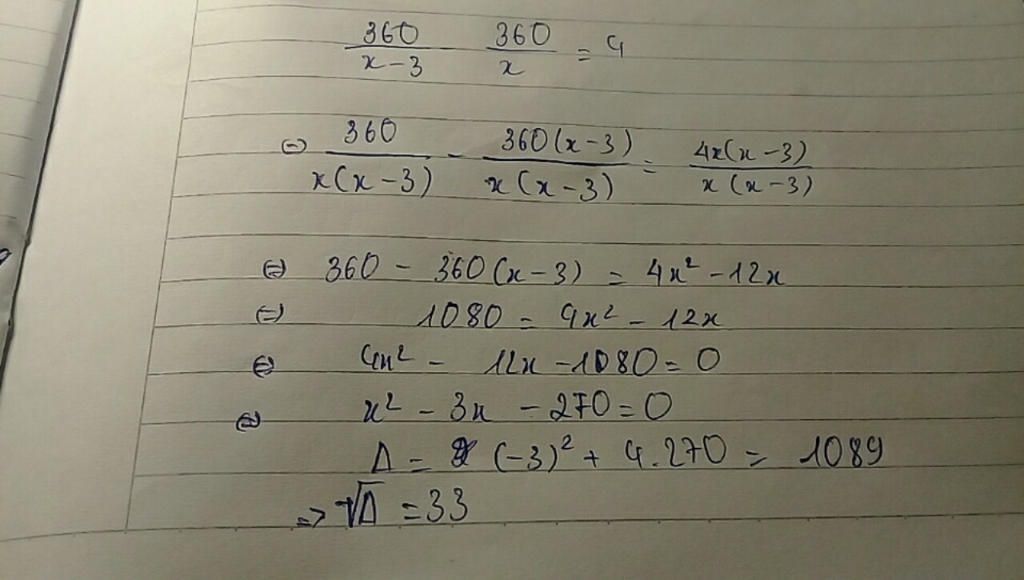 360/(x-3) 360/x = 4
⇔ 360/(x(x-3)) - 360(x-3)/(x(x-3)) = 4x(x-3)/(x(x-3))
⇔ 360 - 360(x-3) = 4x² - 12x
⇔ 1080 = 4x² - 12x
⇔ 4x² - 12x - 1080 = 0
⇔ x² - 3x - 270 = 0
Δ = (-3)² + 4.270 = 1089
=> √Δ = 33